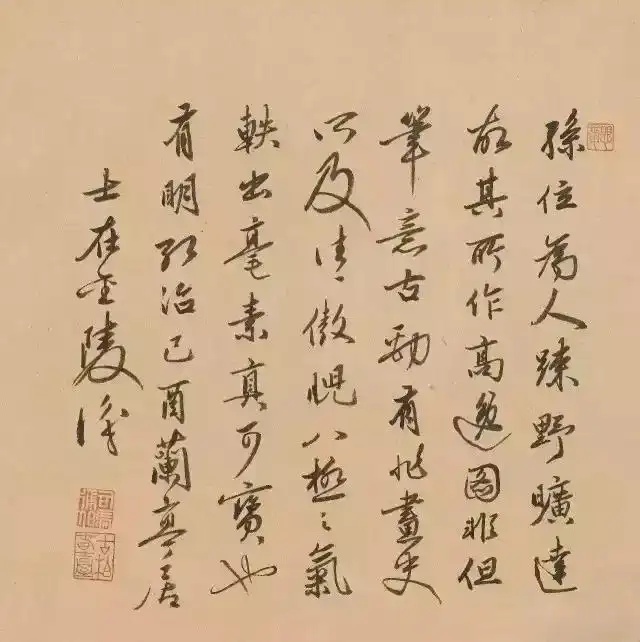 孫位為人踈野曠達
故其所作高逸圖非但
筆意古勁有非畫史
所及情傲睨八極之氣
軼出毫素真可寶也
有明弘治己酉蘭亭居
士在金陵識